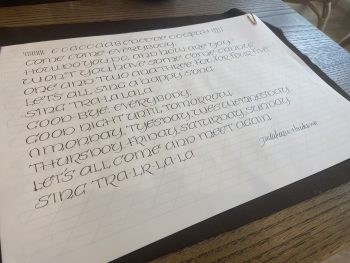 COME COME EVERYBODY.
HOW DO YOU DO, AND HOW ARE YOU.
WON'T YOU HAVE SOME COME CANDY.
ONE AND TWO AND THREE FOR FOR FIVE
LET'S ALL SING A HAPPY SONG
SING TRA-LA LA LA.
GOOD BYE EVERYBODY.
GOOD NIGHT UNTIL TOMORROW.
MONDAY, TUESDAY WEDNESDAY,
THURSDAY, FRIDAY, SATURDAY, SUNDAY,
LET'S ALL COME AND MEET AGAIN
SING TRA-LA-LA LA